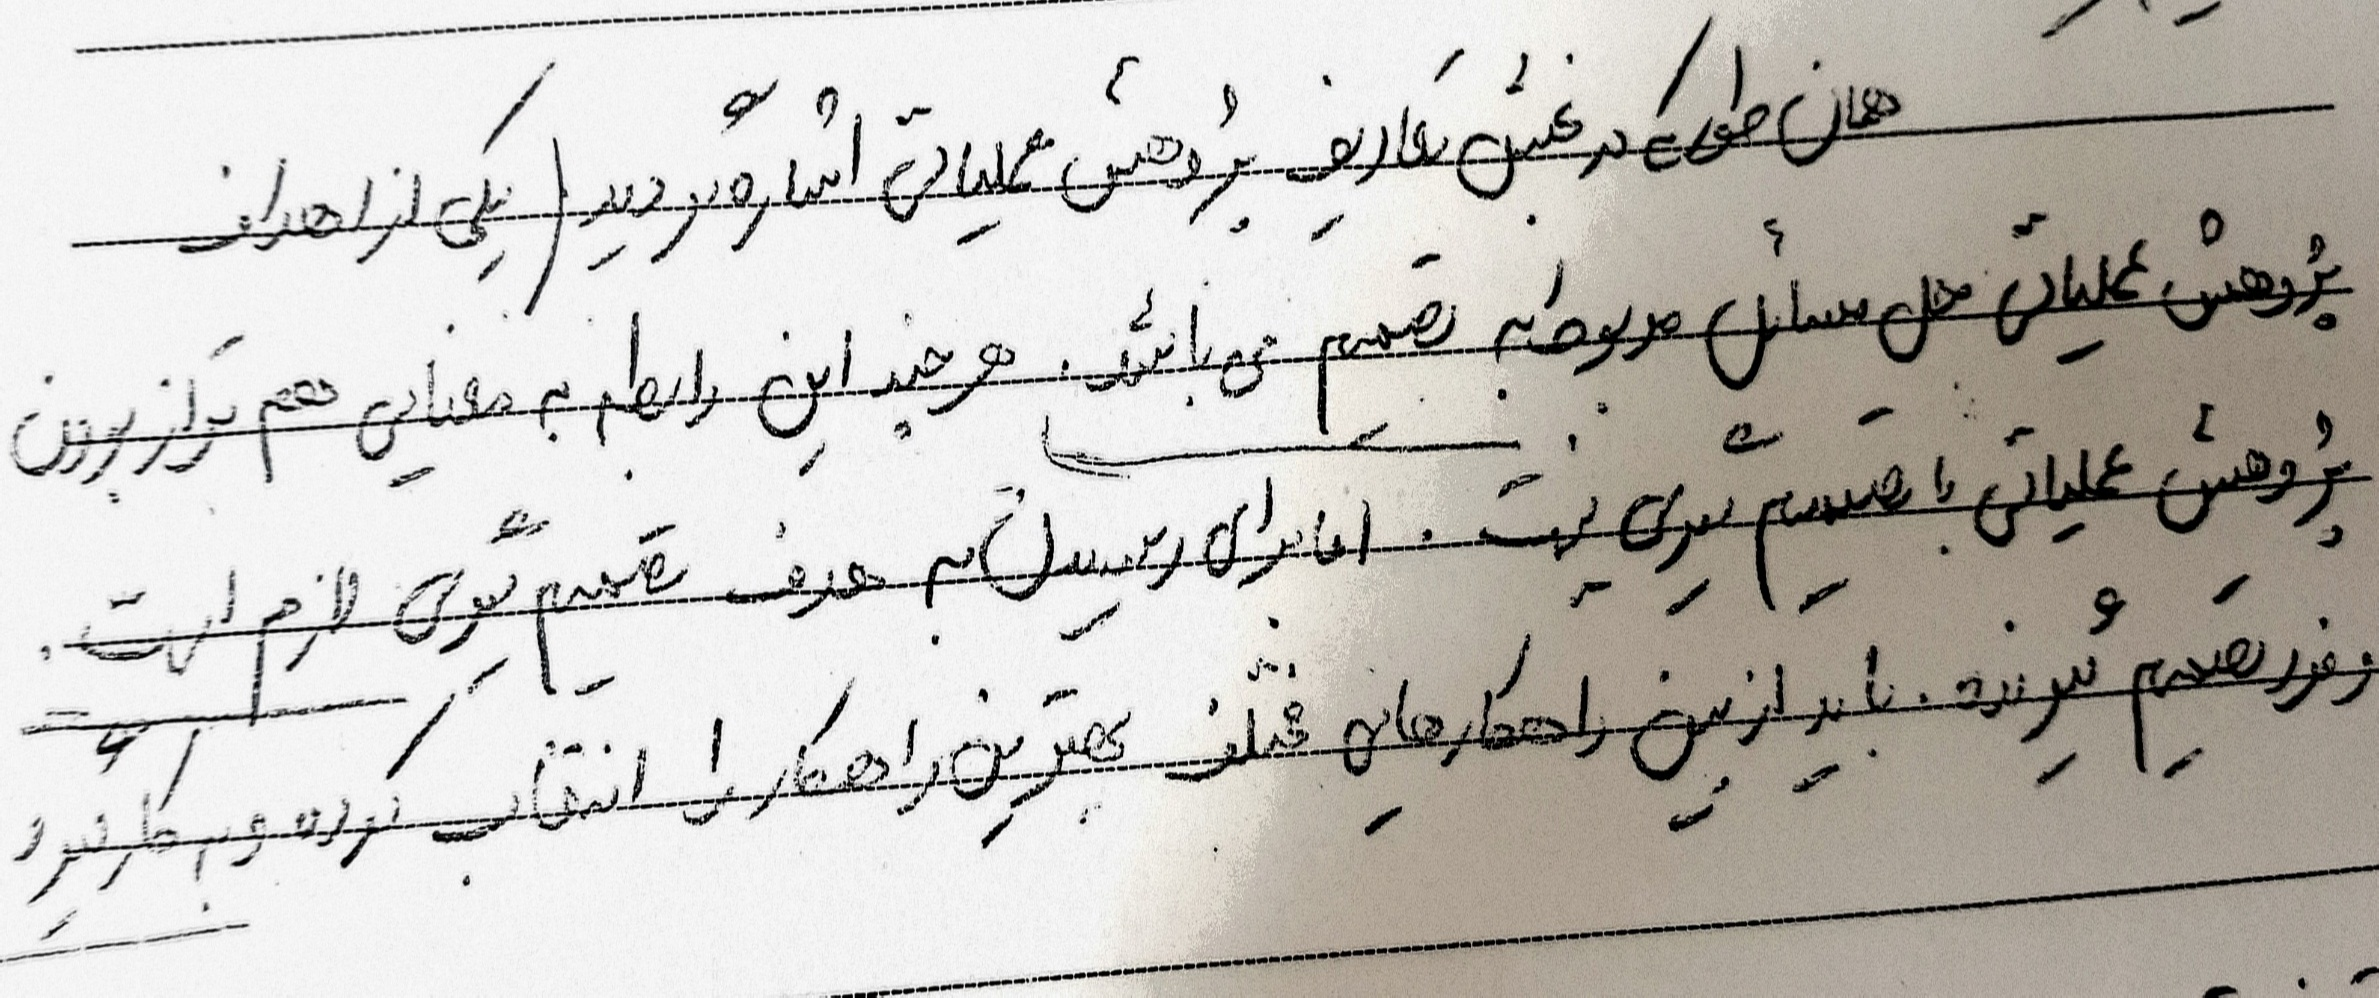 همان طوری که در بخش تعاریف پژوهش عملیاتی اشاره گردید، یکی از اهداف
پژوهش عملیاتی حل مسائل مربوط به تصمیم می باشد. هر چند این رابطه به معنایی هم تراز بودن
پژوهش عملیاتی با تصمیم گیری نیست. اما برای رسیدن به هدف تصمیم گیری لازم است.
و فرد تصمیم گیرنده. باید از بین راهکارهایی مختلف بهترین راهکار را انتخاب کرده و به کار گیرد